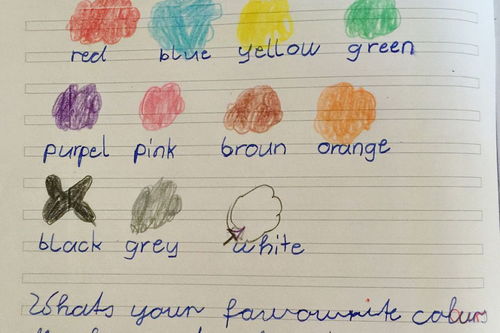 red blue yellow green
purpel pink broun orange
black grey white
Whats your favourite colours